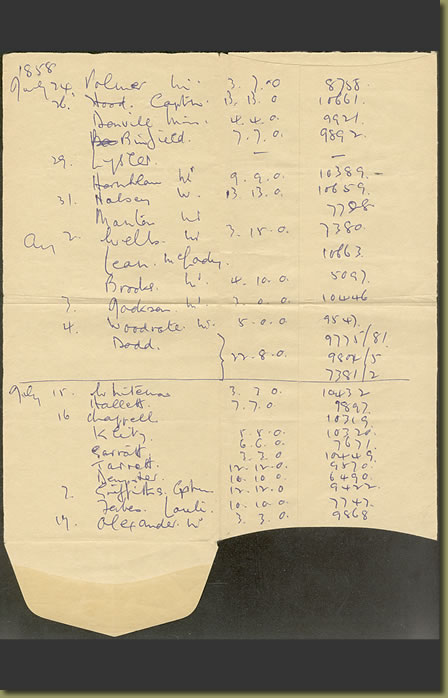 1858
July 24. Polmer Mr. 3. 7. 0 8758.
26. Hood. Captn. 13. 13. 0 10661.
Danville Miss. 4. 4. 0 9921.
Binfield. 7. 7. 0. 9892.
29. Lyster. — —
Hornblow Mr 9. 9. 0. 10389.-
31. Halsey W. 13. 13. 0. 10659.
Manton Mr 7788
Aug 2. Wells. Mr. 3. 15. 0. 7380.
Jean. McCady. 10663.
Brooke. Mr. 4. 10. 0. 5097.
3. Jackson Mr. 3. 0. 0 10446
4. Woodgate. Mr. 5. 0. 0 9547.
Dodd. 9775/81.
22. 8. 0. 9804/5
7381/2
July 15. Whiteman 3. 3. 0 10432
Hallett. 7. 7. 0 9897.
16 Chappell 10319.
5. 5. 0. 10320.
6. 6. 0. 7671.
Garratt. 3. 3. 0 10449.
Jarrett. 12. 12. 0. 9870.
Dempster. 10. 10. 0 6490.
7. Griffiths. Captn. 12. 12. 0 9422.
10. 10. 0 7747.
17. Alexander. Mr 3. 3. 0. 9868